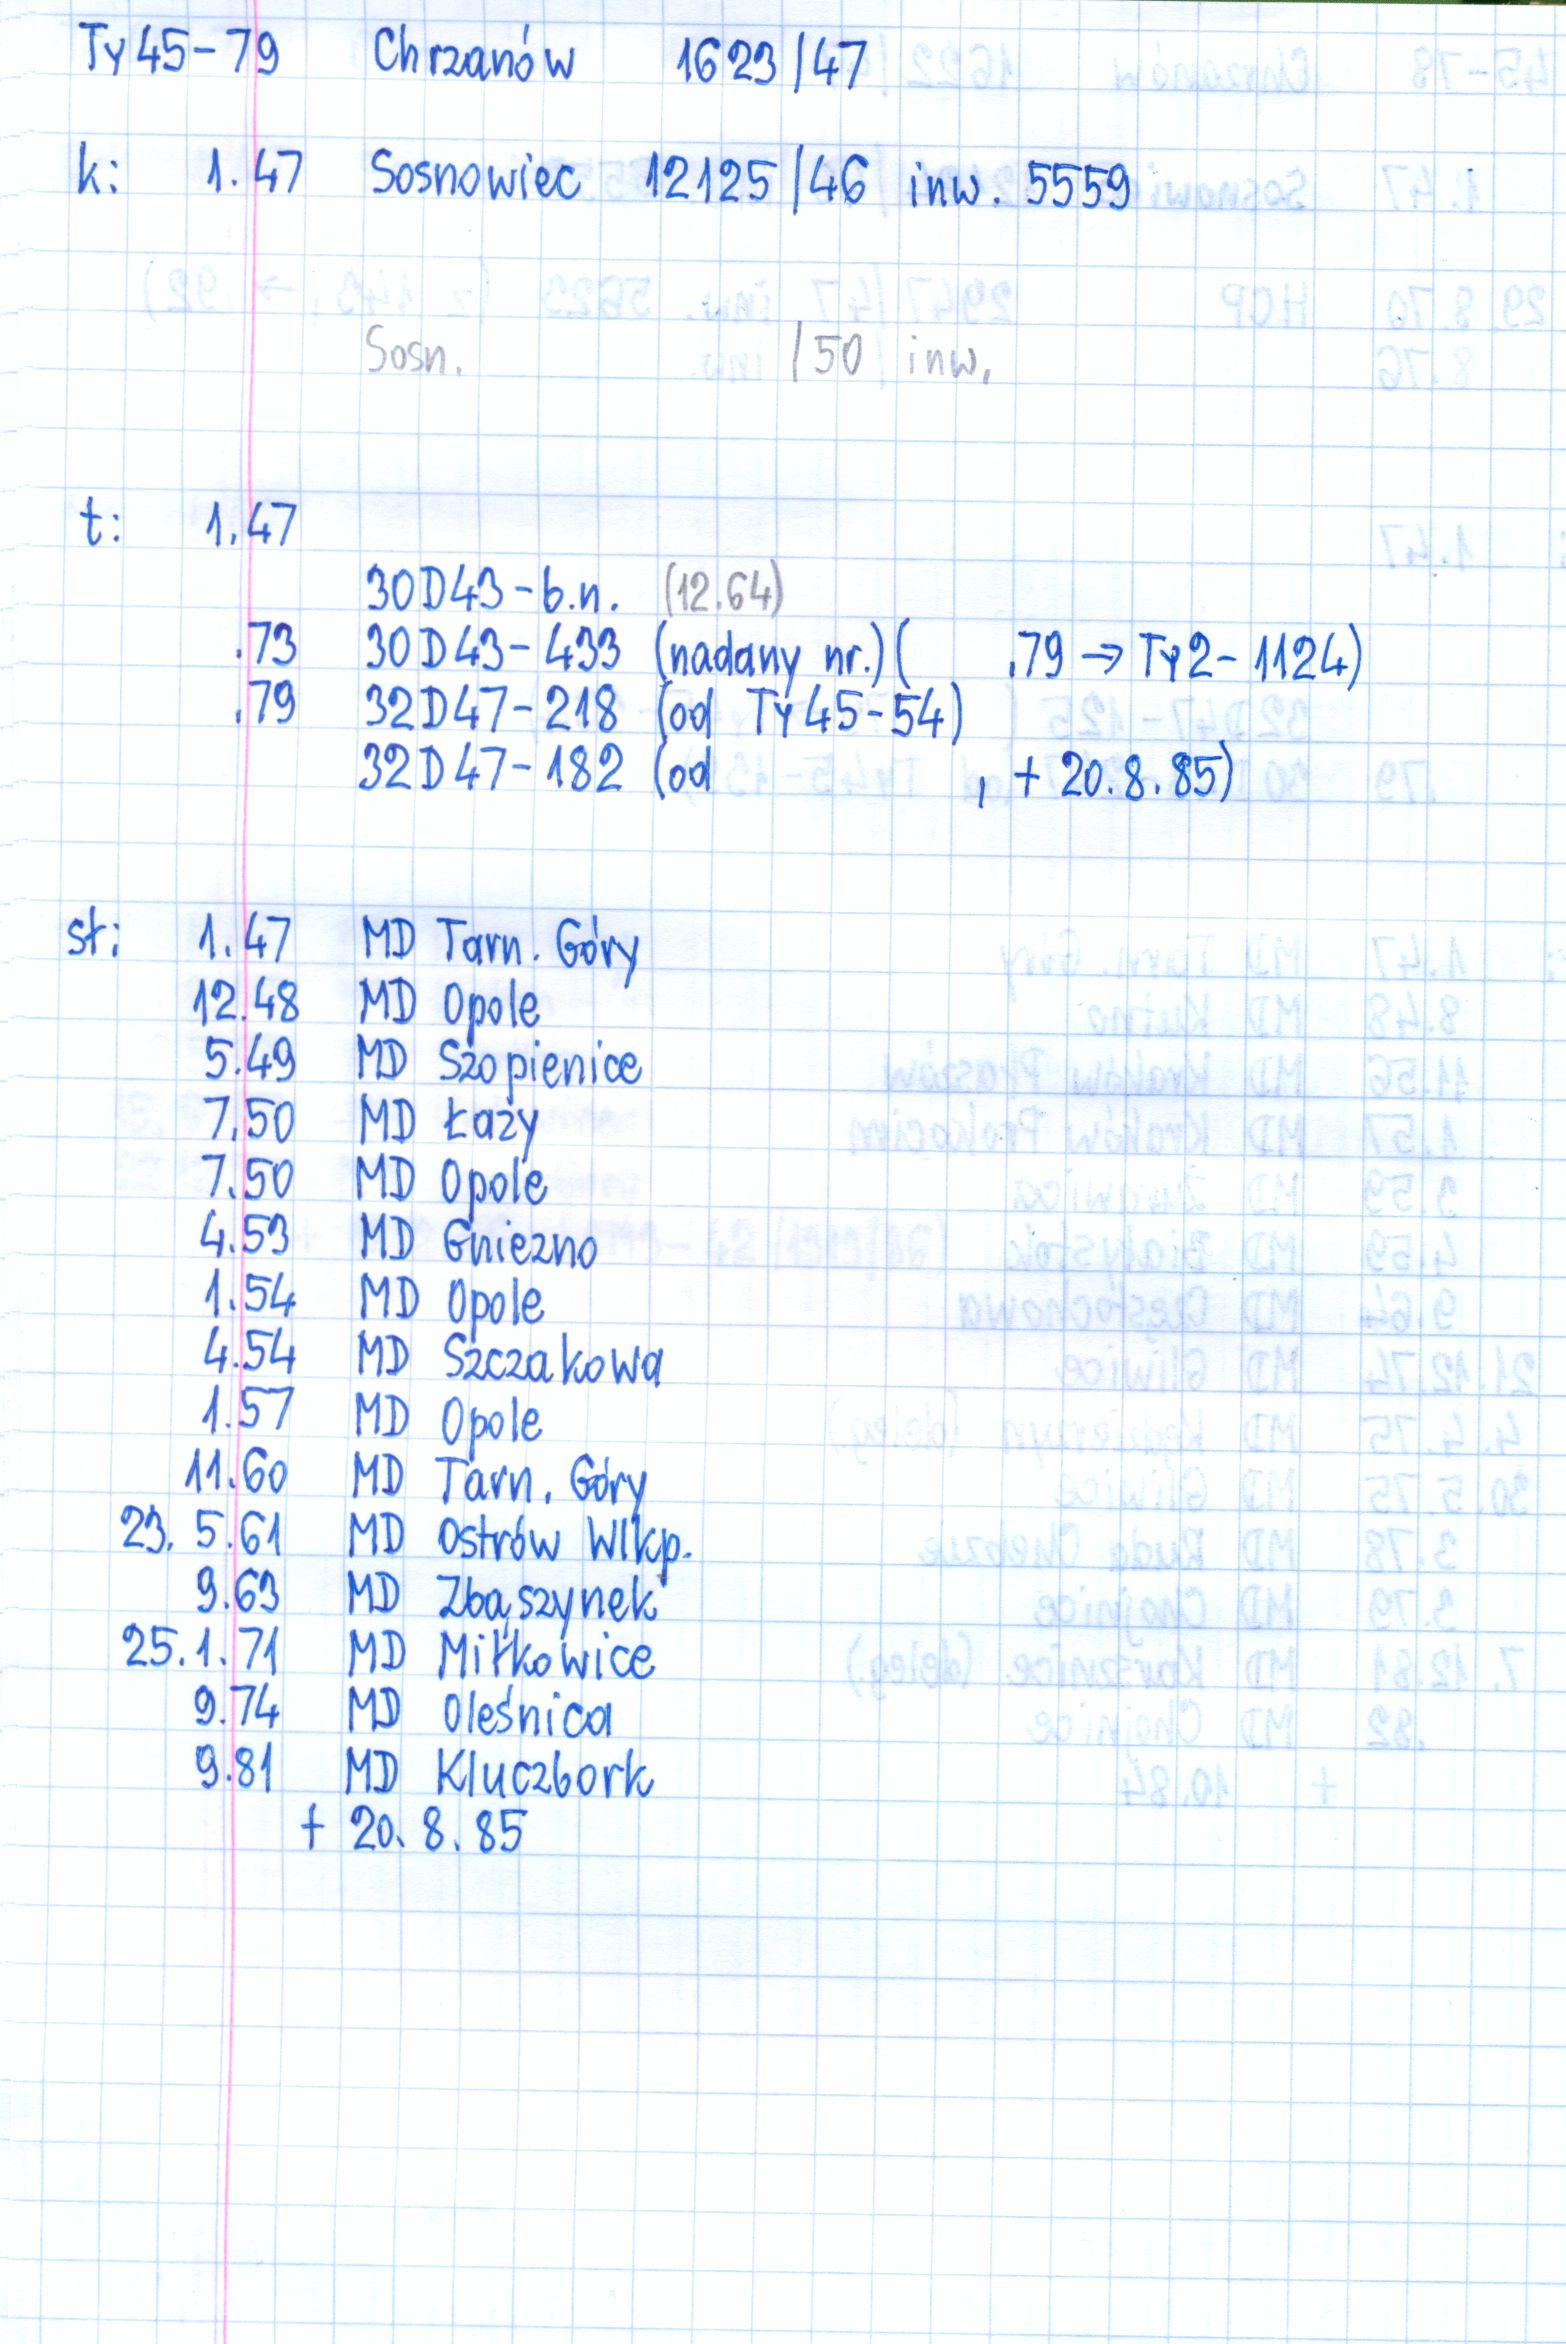 Ty45-79 Chrzanów 1623/47
k: 1.47 Sosnowiec 12125/46 inw. 5559
Sosn. /50 inw.
t: 1.47
30D43-b.n. (12.64)
.73 30D43-433 (nadany nr.) ( .79 → Ty2-1124)
.79 32D47-218 (od Ty45-54)
32D47-182 (od , + 20.8.85)
st: 1.47 MD Tarn. Góry
12.48 MD Opole
5.49 MD Szopienice
7.50 MD Łazy
7.50 MD Opole
4.53 MD Gniezno
1.54 MD Opole
4.54 MD Szczakowa
1.57 MD Opole
11.60 MD Tarn. Góry
23. 5.61 MD Ostrów Wlkp.
9.63 MD Zbąszynek
25.1.71 MD Miłkowice
9.74 MD Oleśnica
9.81 MD Kluczbork
+ 20. 8. 85